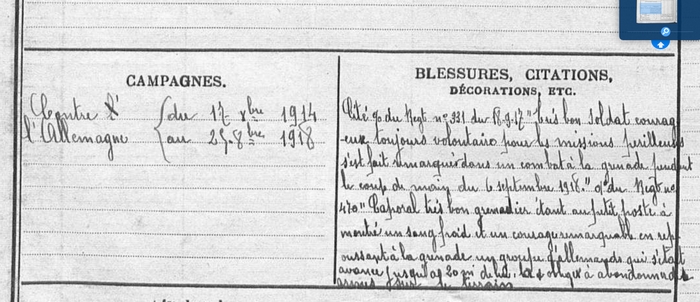 CAMPAGNES.
Contre l'
l'Allemagne
du 17 xbre 1914
au 25.8bre 1918
BLESSURES, CITATIONS,
DÉCORATIONS, ETC.
Cité o/ du Regt no 331 du 18.9.17 "très bon soldat courag
-eux toujours volontaire pour les missions périlleuses
s'est fait remarquer dans un combat à la grenade pendant
le coup de main du 6 septembre 1918." o/ du Regt no
"Caporal très bon grenadier étant au petit poste à
montré un sang froid et un courage remarquable en rep
oussant à la grenade un groupe d'allemands qui s'était
avancé jusqu'à 20 m de lui, à abandonner
armes sur le terrain